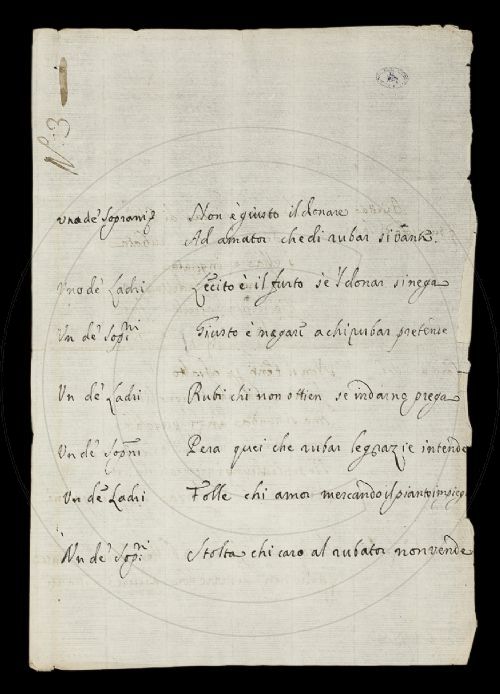 N: 3
Uno de' Soprani Non è giusto il donare
Ad amator che di rubar si vante.
Uno de' Ladri Lecito è il furto se 'l donar si nega
Un de' Sop.ni Giusto è negare a chi rubar pretende
Un de' Ladri Rubi chi non ottien se indarno prega
Un de' Sop.ni Pera quei che rubar le grazie intende
Un de' Ladri Folle chi amor mercando il pianto impiega
Un de' Sop.ni Stolta chi caro al rubator non vende